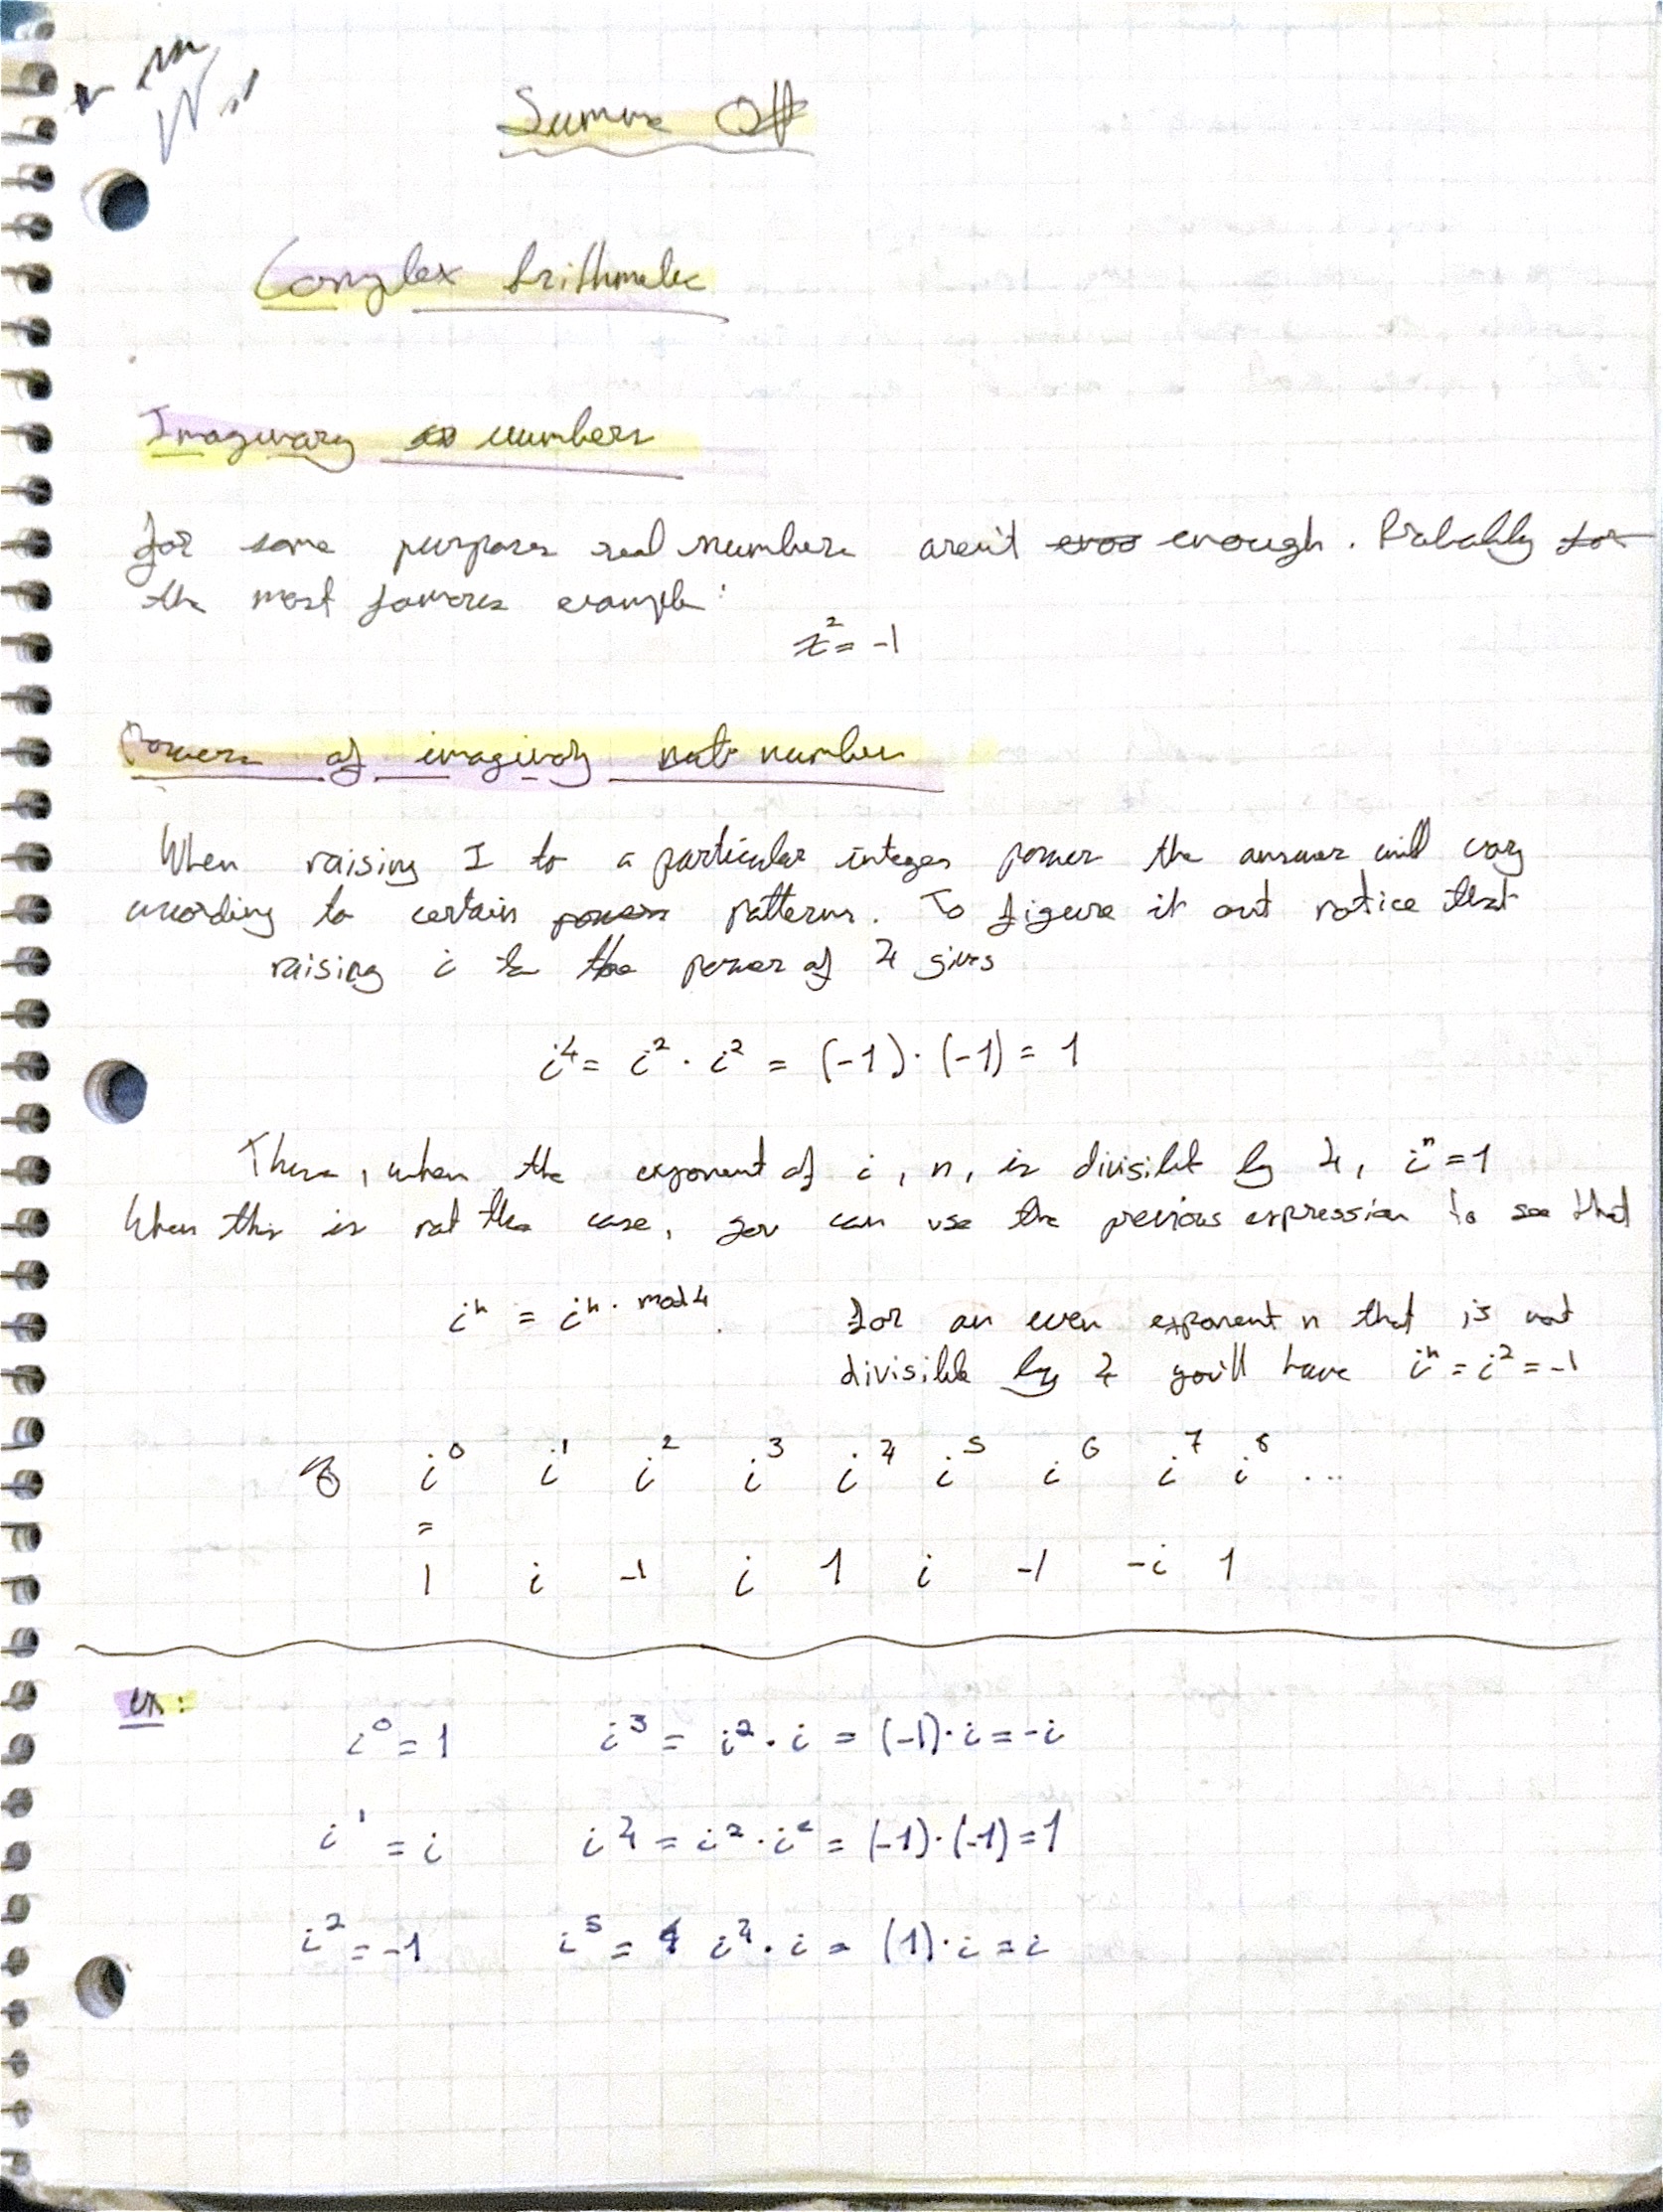 Complex Arithmetic
Imaginary numbers
for some purposes real numbers aren't enough. Probably
the most famous example:
x² = -1
Powers of imaginary number
When raising I to a particular integer power the answer will vary
according to certain patterns. To figure it out notice that
raising i to the power of 4 gives
i⁴ = i² · i² = (-1) · (-1) = 1
Thus, when the exponent of i, n, is divisible by 4, iⁿ = 1
When this is not the case, you can use the previous expression to see that
iⁿ = iⁿ · mod 4
for an even exponent n that is not
divisible by 4 you'll have iⁿ = i² = -1
i⁰ i¹ i² i³ i⁴ i⁵ i⁶ i⁷ i⁸ ...
=
1 i -1 i 1 i -1 -i 1
ex:
i⁰ = 1 i³ = i² · i = (-1) · i = -i
i¹ = i i⁴ = i² · i² = (-1) · (-1) = 1
i² = -1 i⁵ = i⁴ · i = (1) · i = i